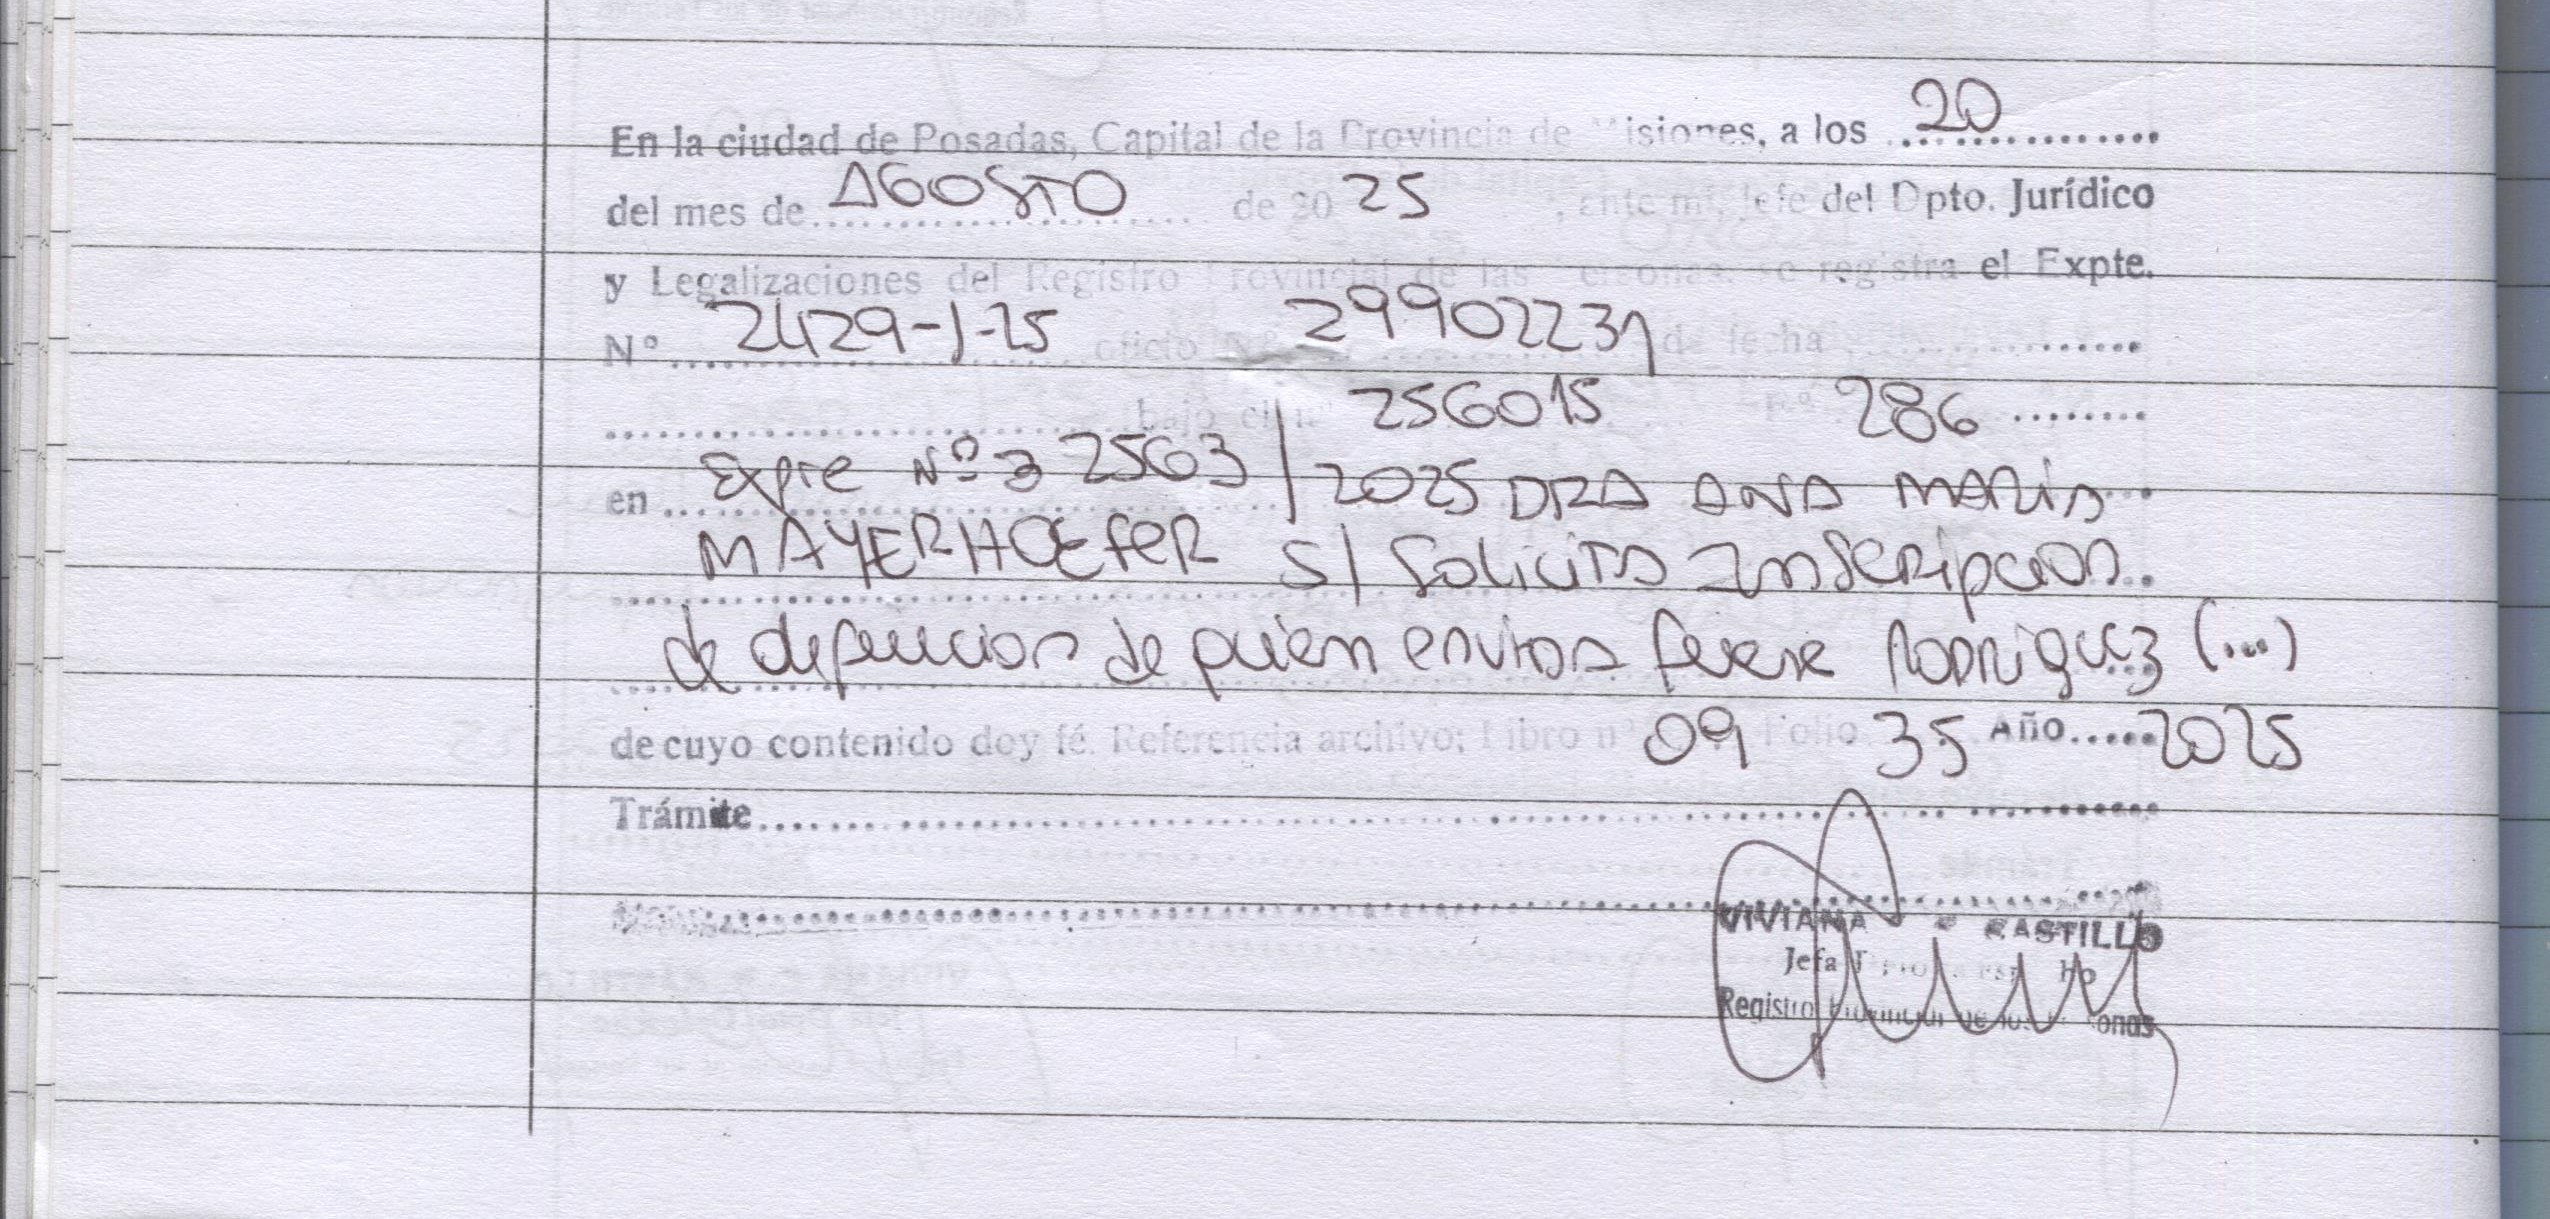 En la ciudad de Posadas, Capital de la Provincia de Misiones, a los 20
del mes de AGOSTO de 20 25, ante mi, Jefe del Dpto. Jurídico
y Legalizaciones del Registro Provincial de las Personas, se registra el Expte.
Nº 2429-J-25 oficio Nº 29902231 de fecha
bajo el nº 256015 Fº 286
en Expte Nº 22563/2025 DRA ANA MARIA
MAYERHOEFER S/ Solicita Inscripcion
de defuncion de quien en vida fuere Rodriguez (...)
de cuyo contenido doy fé. Referencia archivo: Libro nº 09 Folio 35 Año 2025
Trámite
VIVIANA CASTILLO
Jefa
Registro Provincial de las Personas